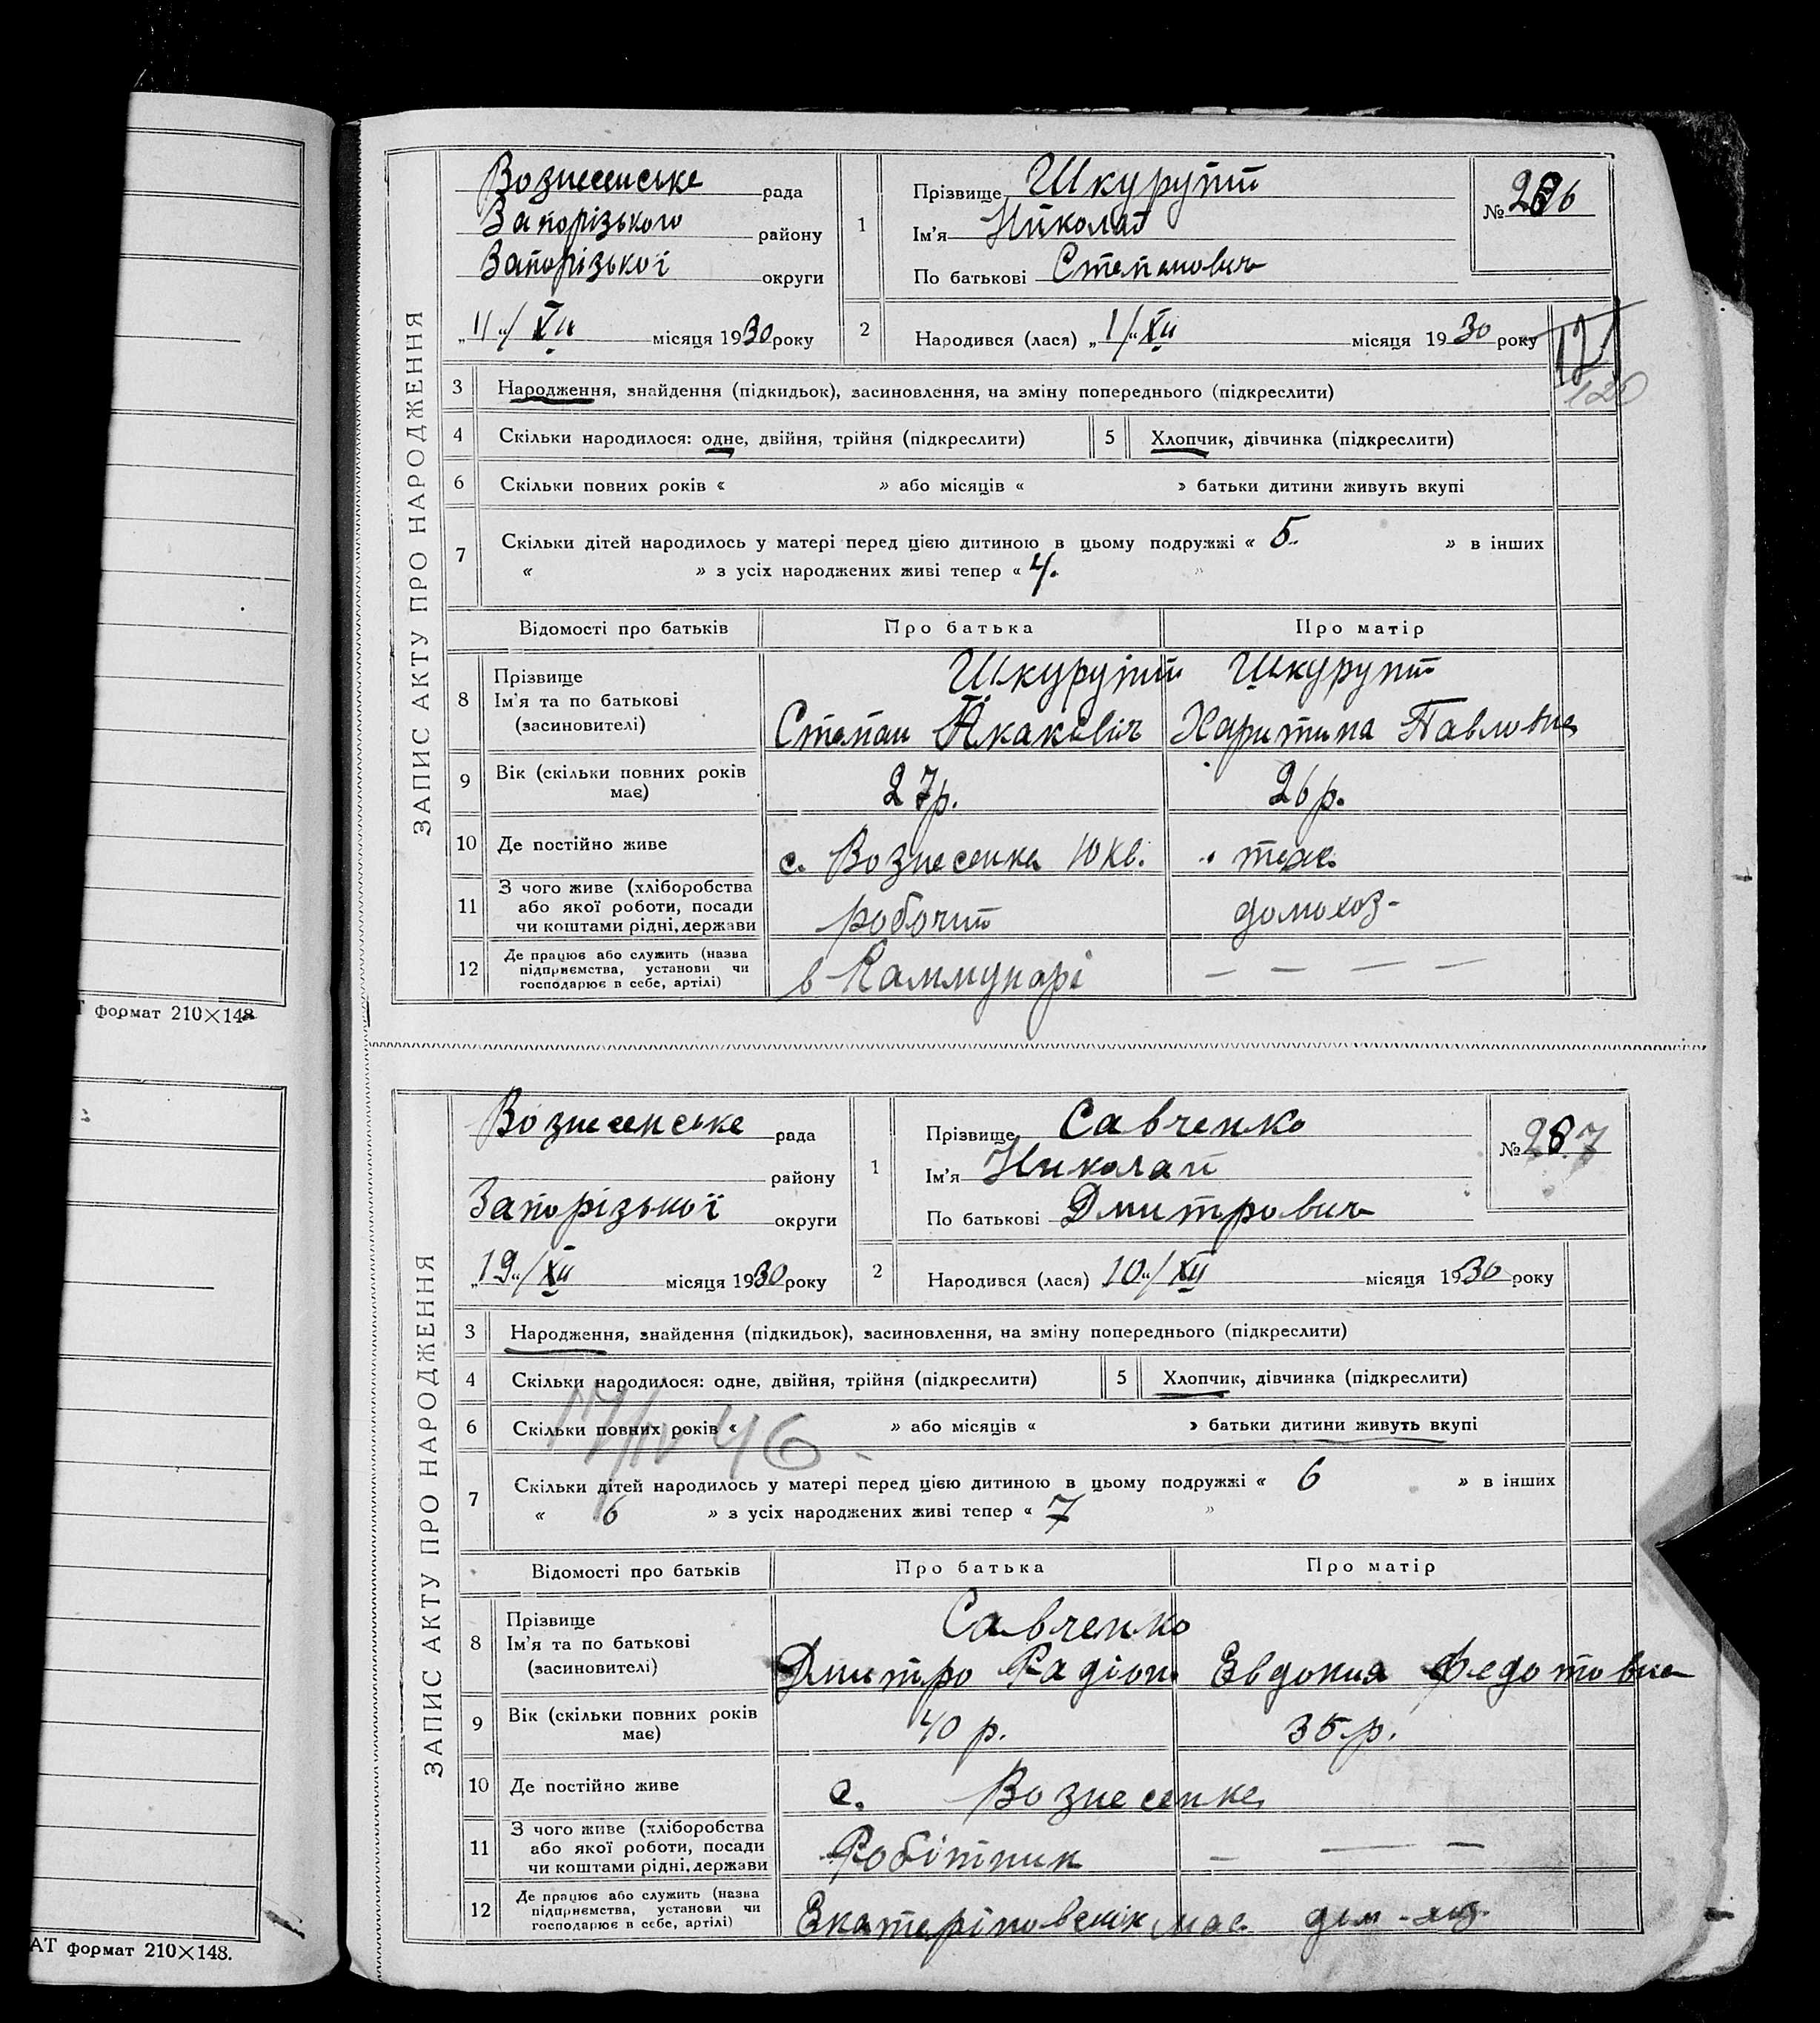 ЗАПИС АКТУ ПРО НАРОДЖЕННЯ
Вознесенське рада
Запорізького району
Запорізької округи
„11“/XII місяця 1930 року
1
Прізвище Шкурупій
Ім'я Николай
По батькові Степанович
№ 286
2
Народився (лася) „1/“XII місяця 1930 року
121
120
3 Народження, знайдення (підкидьок), засиновлення, на зміну попереднього (підкреслити)
4 Скільки народилося: одне, двійня, трійня (підкреслити) 5 Хлопчик, дівчинка (підкреслити)
6 Скільки повних років « » або місяців « » батьки дитини живуть вкупі
7 Скільки дітей народилось у матері перед цією дитиною в цьому подружжі « 5. » в інших
« » з усіх народжених живі тепер « 4. »
Відомості про батьків Про батька Про матір
8 Прізвище
Ім'я та по батькові
(засновителі)
Шкурупій Шкурупій
Степан Акакович Харитина Павловна
9 Вік (скільки повних років
має)
27р. 26р.
10 Де постійно живе с. Вознесенка 10 кв. теж
11 З чого живе (хліборобства
або якої роботи, посади
чи коштами рідні, держави
робочий домохоз-
12 Де працює або служить (назва
підприємства, установи чи
господарює в себе, артілі)
в Каммунарі — — — —
Т формат 210×148
ЗАПИС АКТУ ПРО НАРОДЖЕННЯ
Вознесенське рада
району
Запорізької округи
„19“/XII місяця 1930 року
1
Прізвище Савченко
Ім'я Николай
По батькові Дмитрович
№ 287
2
Народився (лася) 10“/XII місяця 1930 року
3 Народження, знайдення (підкидьок), засиновлення, на зміну попереднього (підкреслити)
4 Скільки народилося: одне, двійня, трійня (підкреслити) 5 Хлопчик, дівчинка (підкреслити)
17/IV 46
6 Скільки повних років « » або місяців « » батьки дитини живуть вкупі
7 Скільки дітей народилось у матері перед цією дитиною в цьому подружжі « 6 » в інших
« 6 » з усіх народжених живі тепер « 7 »
Відомості про батьків Про батька Про матір
8 Прізвище
Ім'я та по батькові
(засиновителі)
Савченко
Дмитро Радіон Евдокия Федотовна
9 Вік (скільки повних років
має)
40 р. 35 р.
10 Де постійно живе с. Вознесенке
11 З чого живе (хліборобства
або якої роботи, посади
чи коштами рідні, держави
Робітник — — —
12 Де працює або служить (назва
підприємства, установи чи
господарює в себе, артілі)
дом-хоз-
АТ формат 210×148.